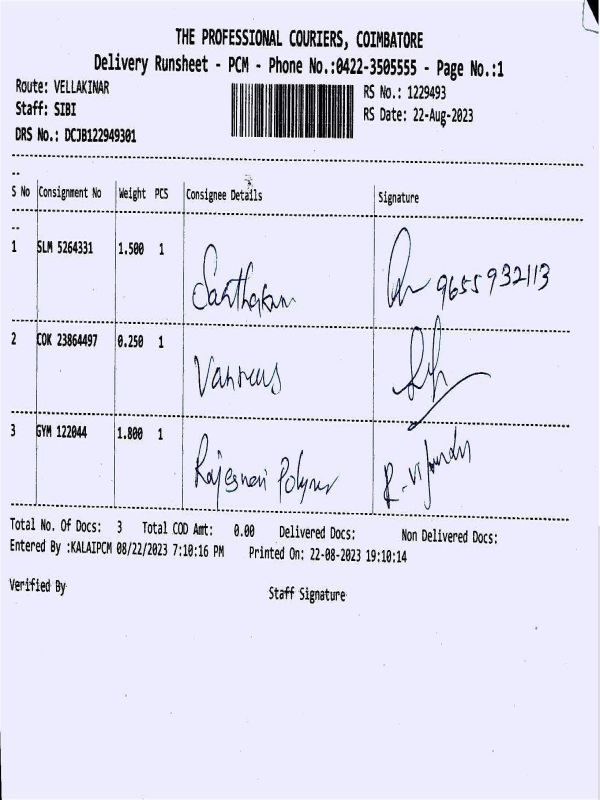 THE PROFESSIONAL COURIERS, COIMBATORE
Delivery Runsheet - PCM - Phone No.:0422-3505555 - Page No.:1
Route: VELLAKINAR
RS No.: 1229493
Staff: SIBI
RS Date: 22-Aug-2023
DRS No.: DCJB122949301
S No Consignment No Weight PCS Consignee Details Signature
1 SLM 5264331 1.500 1 9655932113
2 COK 23864497 0.250 1
3 GYM 122044 1.800 1
Total No. Of Docs: 3 Total COD Amt: 0.00 Delivered Docs: Non Delivered Docs:
Entered By :KALAIPCM 08/22/2023 7:10:16 PM Printed On: 22-08-2023 19:10:14
Verified By Staff Signature